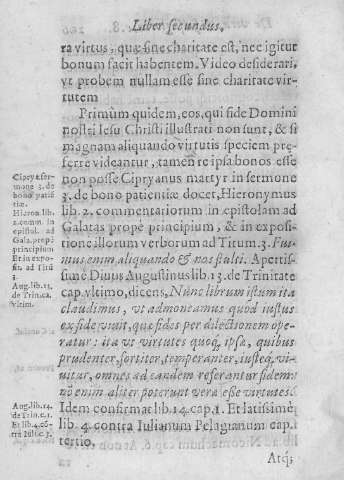 Liber secundus.
ra virtus, quæ sine charitate est, nec igitur
bonum facit habentem. Video desiderari,
vt probem nullam esse sine charitate vir-
tutem
Primum quidem, eos, qui fide Domini
nostri Iesu Christi illustrati non sunt, & si
magnam aliquando virtutis speciem præ-
ferre videantur, tamen re ipsa bonos esse
non posse Cipryanus martyr in sermone
3. de bono patientiæ docet, Hieronymus
lib. 2. commentariorum in epistolam ad
Galatas propè principium, & in exposi-
tione illorum verborum ad Titum. 3. Fui-
mus enim aliquando & nos stulti. Apertis-
sime Diuus Augustinus lib. 13. de Trinitate
cap. vltimo, dicens, Nunc librum istum ita
claudimus, vt admoneamus quod iustus
ex fide viuit, quæ fides per dilectionem ope-
ratur: ita vt virtutes quoq, ipsæ, quibus
prudenter, fortiter, temperanter, iusteq, vi-
uitur, omnes ad eandem referantur fidem:
nõ enim aliter poterunt veræ esse virtutes.
Idem confirmat lib. 14. cap. 1. Et latissimè
lib. 4. contra Iulianum Pelagianum cap.
tertio.
Atq;
Cipryã ser-
mone 3. de
bono patiẽ
tiæ.
Hieron. lib.
2. comm. in
epistol. ad
Gala. propè
principium
Et in expo-
sitio. ad Titũ
3.
Aug. lib. 13.
de Trin. ca.
vltim.
Aug. lib. 14.
de Trin. c. 1.
Et lib. 4. cõ-
tra Iuli. c. 3.